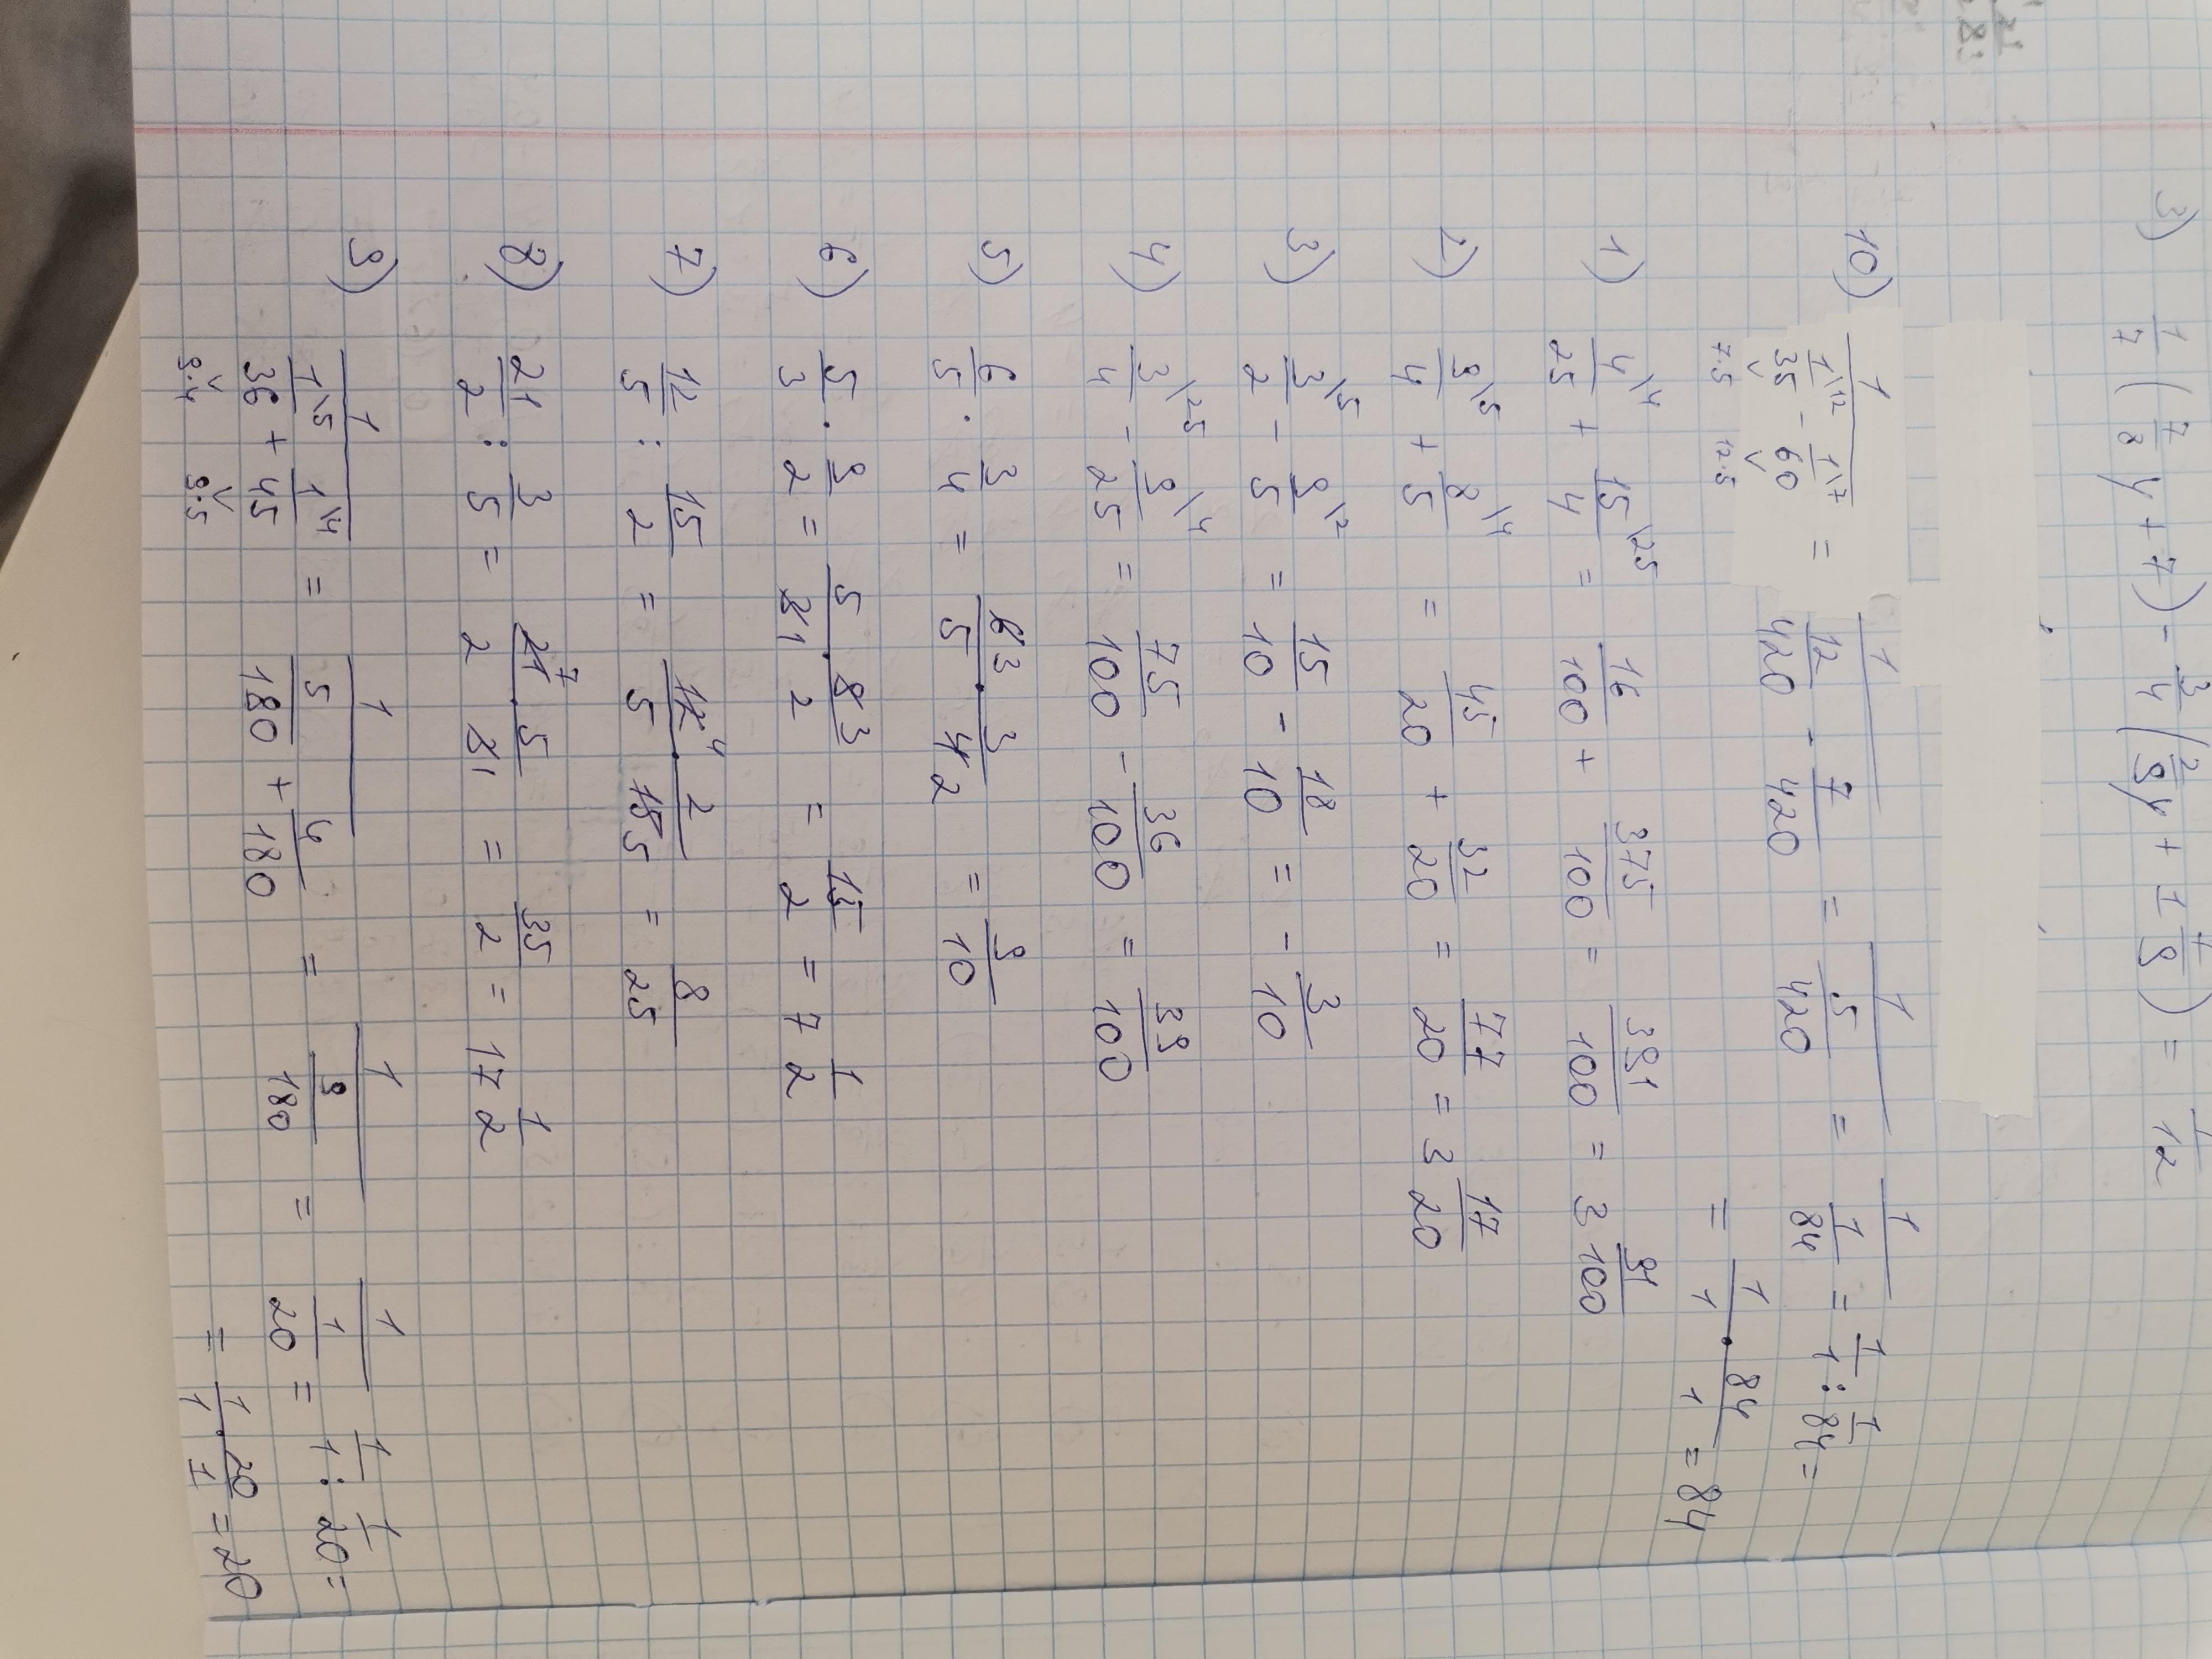 3) 1/7 (7/8 y + 7) - 3/4 (2/9 y + 1 1/9) = 1/12
10) 1/(1\12/35 - 1\7/60) = 1/(12/420 - 7/420) = 1/(5/420) = 1/(1/84) = 1/1 : 1/84 =
7·5 12·5 = 1/1 · 84/1 = 84
1) 4\4/25 + 15\25/4 = 16/100 + 375/100 = 391/100 = 3 91/100
2) 9\5/4 + 8\4/5 = 45/20 + 32/20 = 77/20 = 3 17/20
3) 3\5/2 - 9\2/5 = 15/10 - 18/10 = - 3/10
4) 3\25/4 - 9\4/25 = 75/100 - 36/100 = 39/100
5) 6/5 · 3/4 = 6 3 · 3/5 · 4 2 = 9/10
6) 5/3 · 9/2 = 5 · 9 3/3 1 · 2 = 15/2 = 7 1/2
7) 12/5 : 15/2 = 12 4 · 2/5 · 15 5 = 8/25
8) 21/2 : 3/5 = 21 7 · 5/2 · 3 1 = 35/2 = 17 1/2
9) 1/(1\5/36 + 1\4/45) = 1/(5/180 + 4/180) = 1/(9/180) = 1/(1/20) = 1/1 : 1/20 =
9·4 9·5 = 1/1 · 20/1 = 20